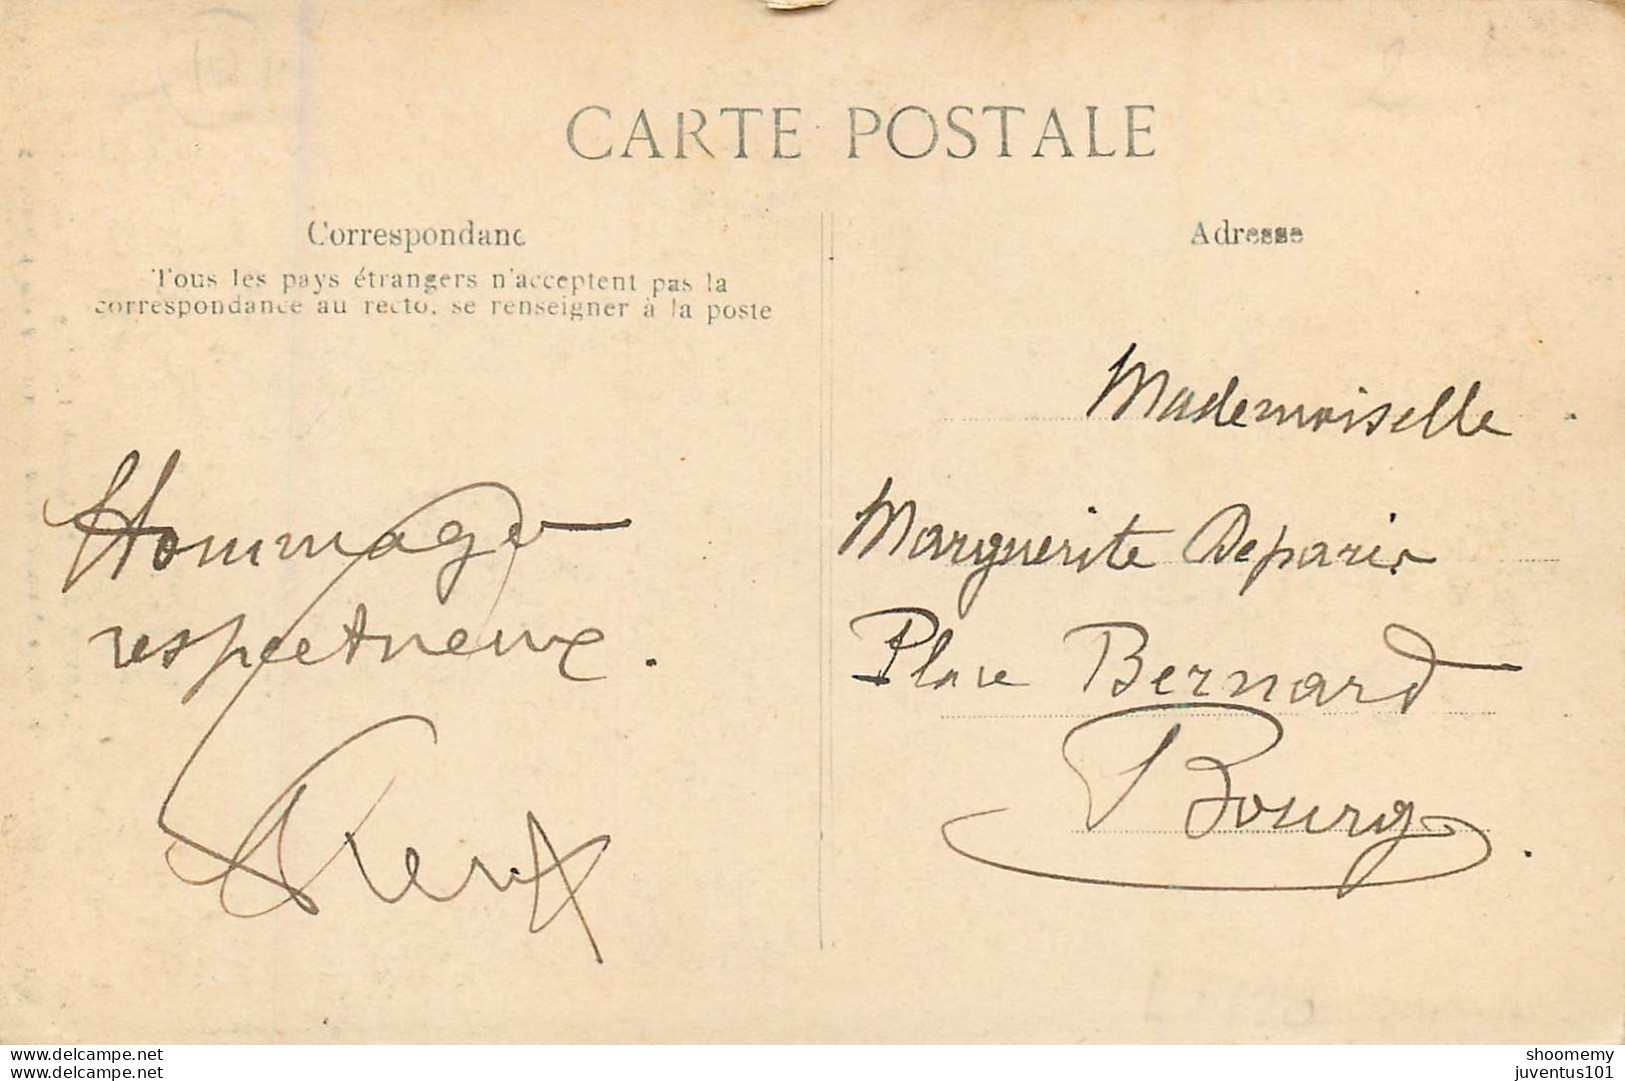 CARTE POSTALE
Correspondanc
Tous les pays étrangers n'acceptent pas la
correspondance au recto, se renseigner à la poste
Hommages
respectueux.
Adresse
Mademoiselle
Marguerite Deparis
Place Bernard
Bourg.
www.delcampe.net
www.delcampe.net
shoomemy
juventus101